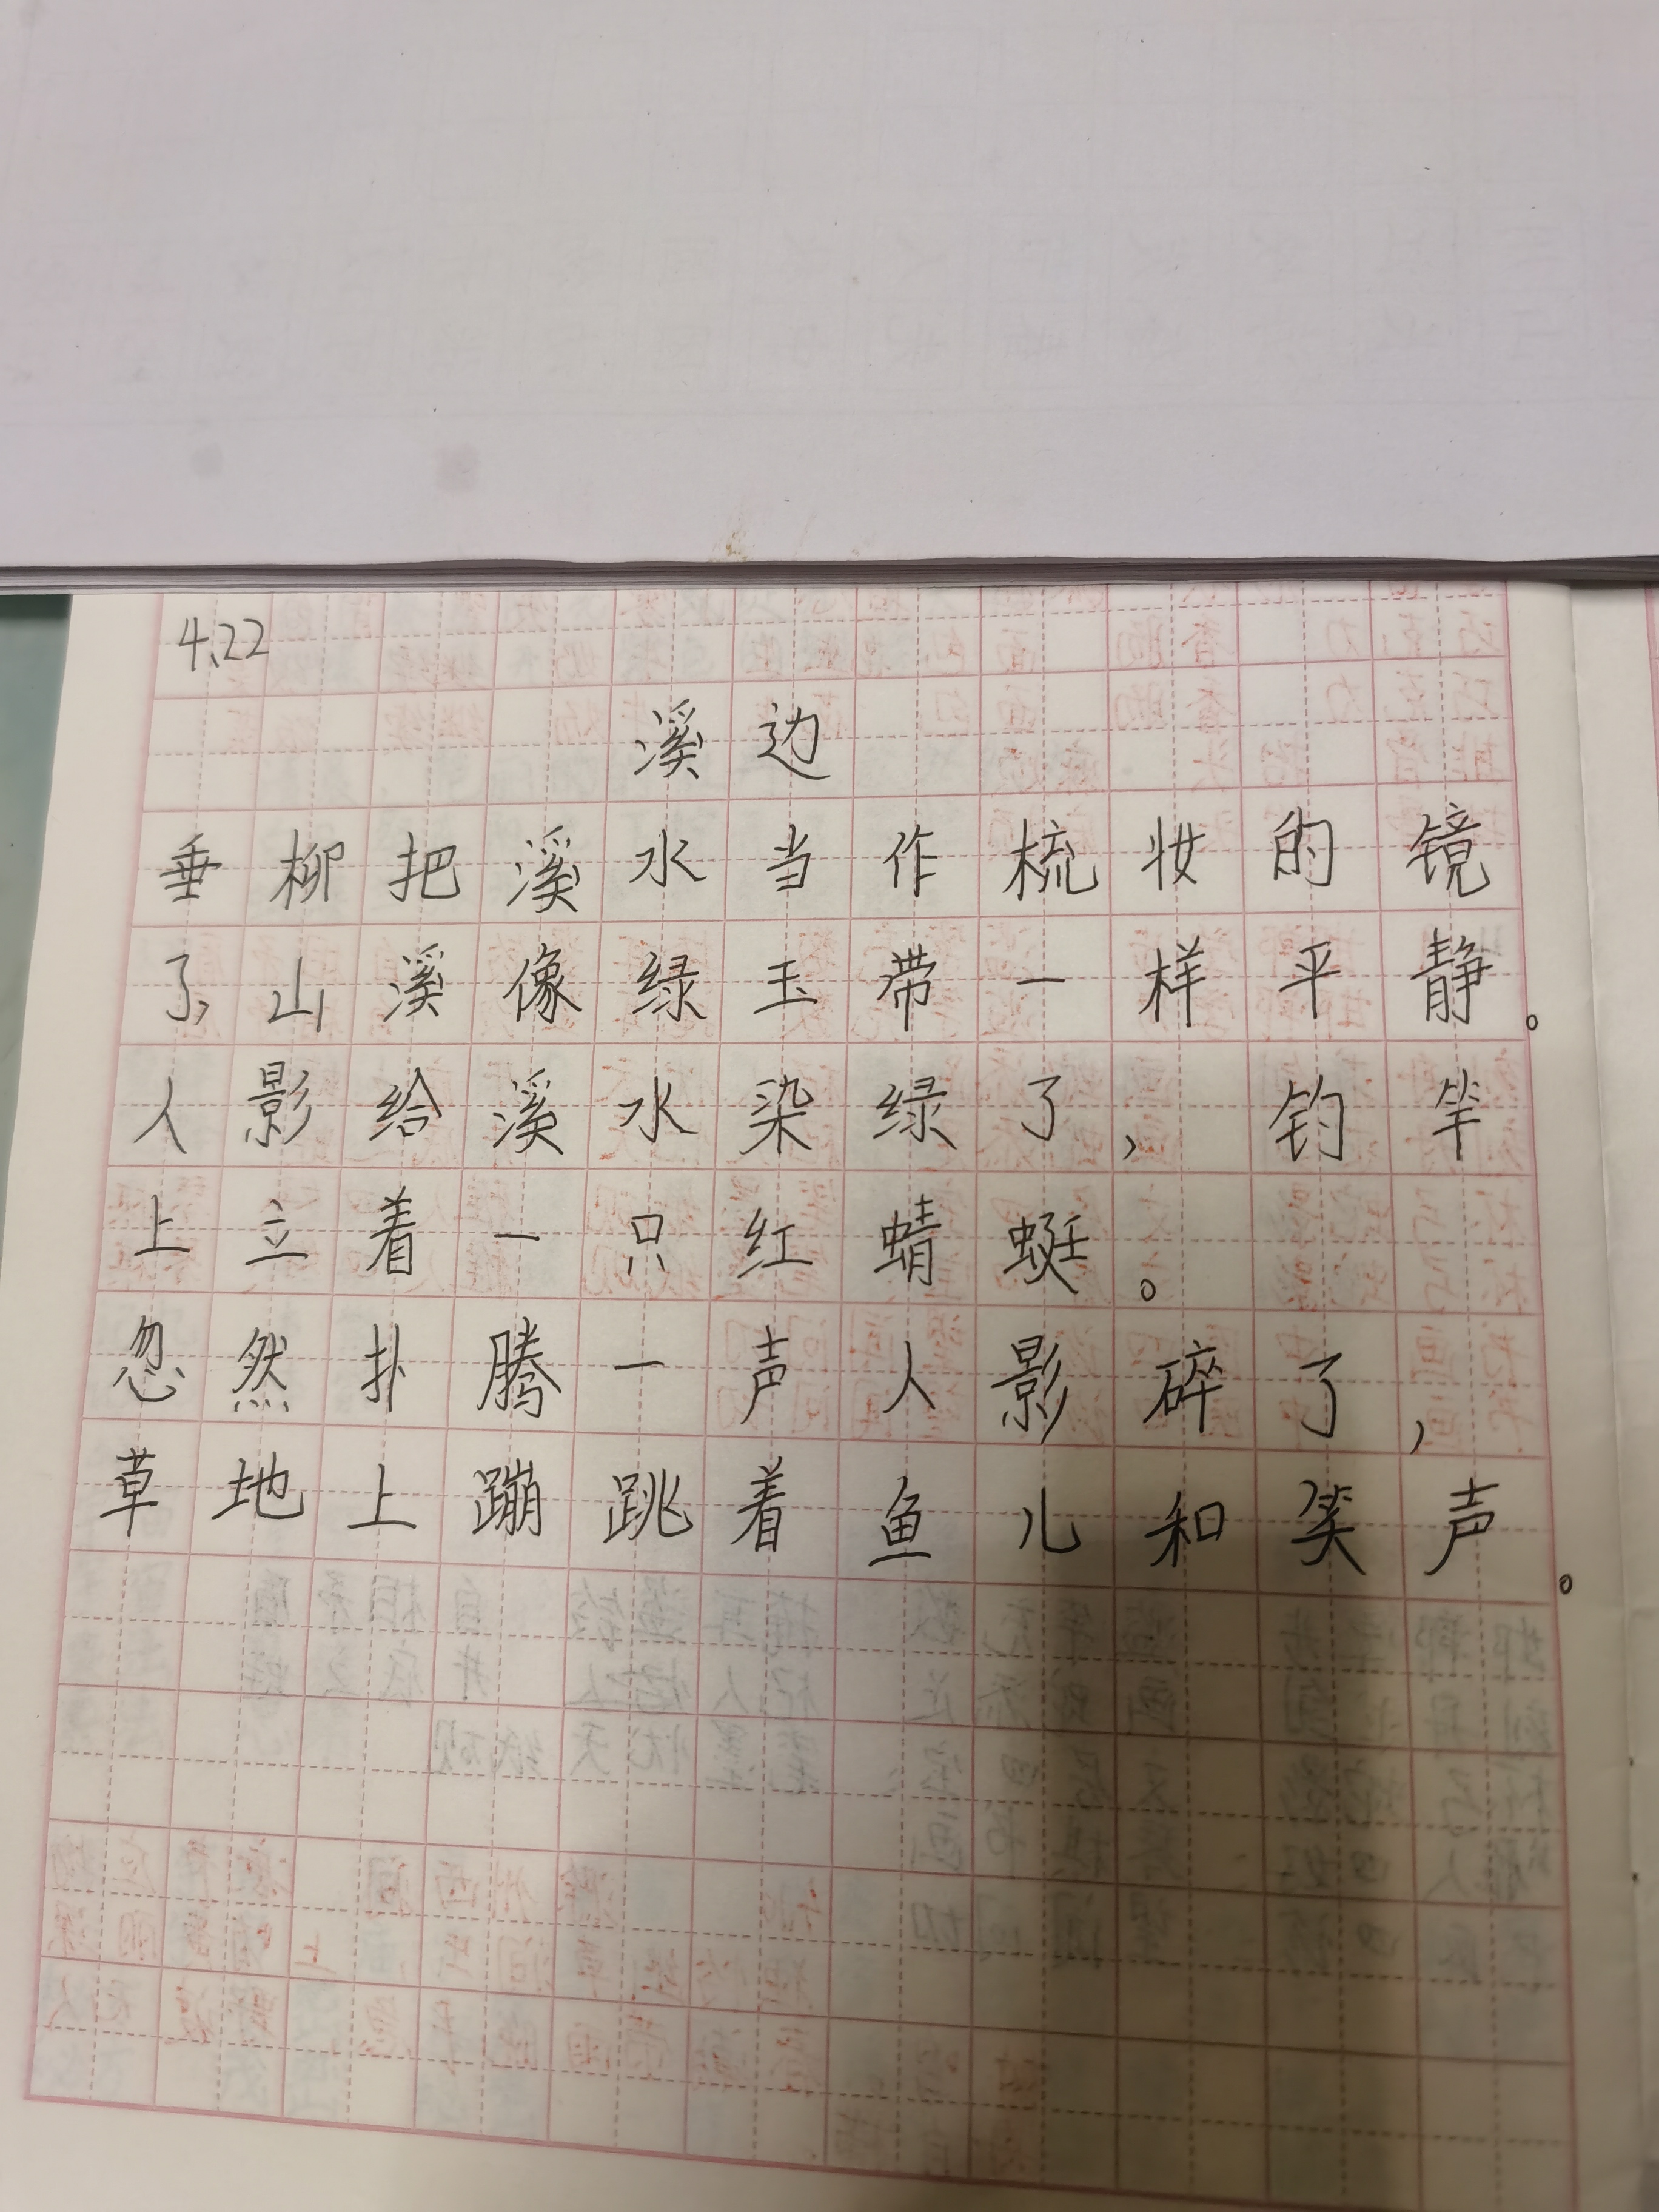 4.22
溪边
垂柳把溪水当作梳妆的镜
了,山溪像绿玉带一样平静。
人影给溪水染绿了,钓竿
上立着一只红蜻蜓。
忽然扑腾一声人影碎了,
草地上蹦跳着鱼儿和笑声。